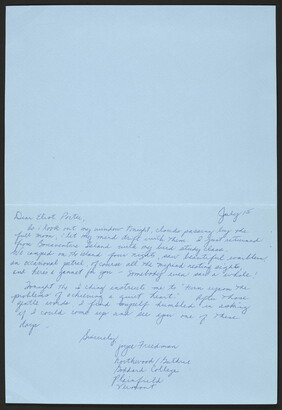 July 5
Dear Eliot Porter,
As I look out my window tonight, clouds passing by the
full moon, I let my mind drift with them. I just returned
from Island with my bird study class.
We camped on the island four nights, saw beautiful warblers
an occasional petrel, of course all the nesting eiders,
and here's a gannet for you - somebody even saw a whale!
Tonight the I Ching instructs me to "
problems of achieving a quiet heart." After those
gentle words I find myself in asking
if I could come up and see you one of these
days.
Sincerely,
Joyce Freedman
Northwood/
Goddard College
Plainfield
Vermont